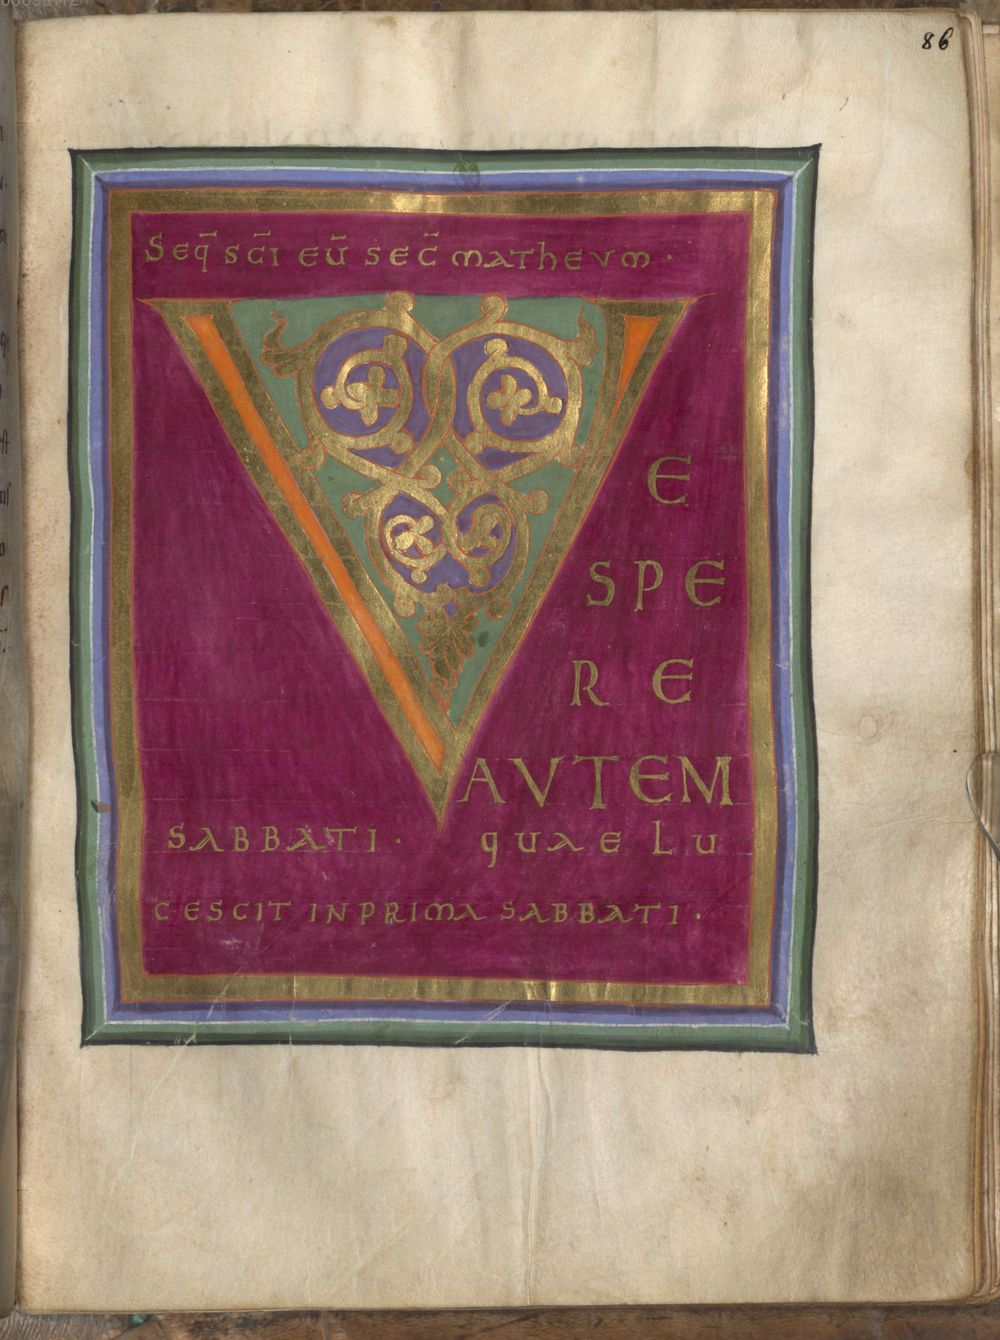 86
Seq̄ sc̄i eū sec̄ matheum·
V
E
SPE
RE
AVTEM
SABBATI· quae lu
CESCIT IN PRIMA SABBATI·